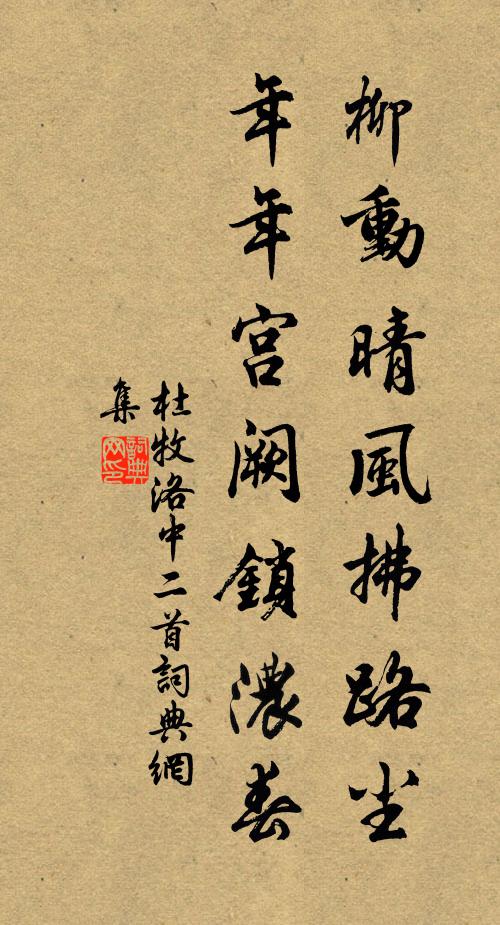 柳動晴風拂路尘
年年宫阙鎖濃春
杜牧洛中二首詞典網
集
詞典网印